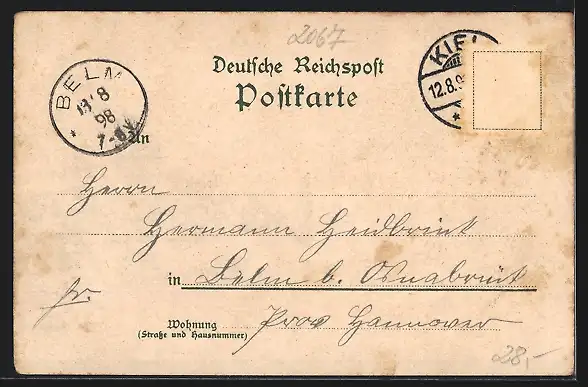 2067
Deutsche Reichspost
Postkarte
KIEL
12.8.9
BELM
13/8
98
7-8V
An
Herrn
Hermann Heidbrink
in Belm b. Osnabrück
fr.
Wohnung
(Straße und Hausnummer)
Prov Hannover
28,-